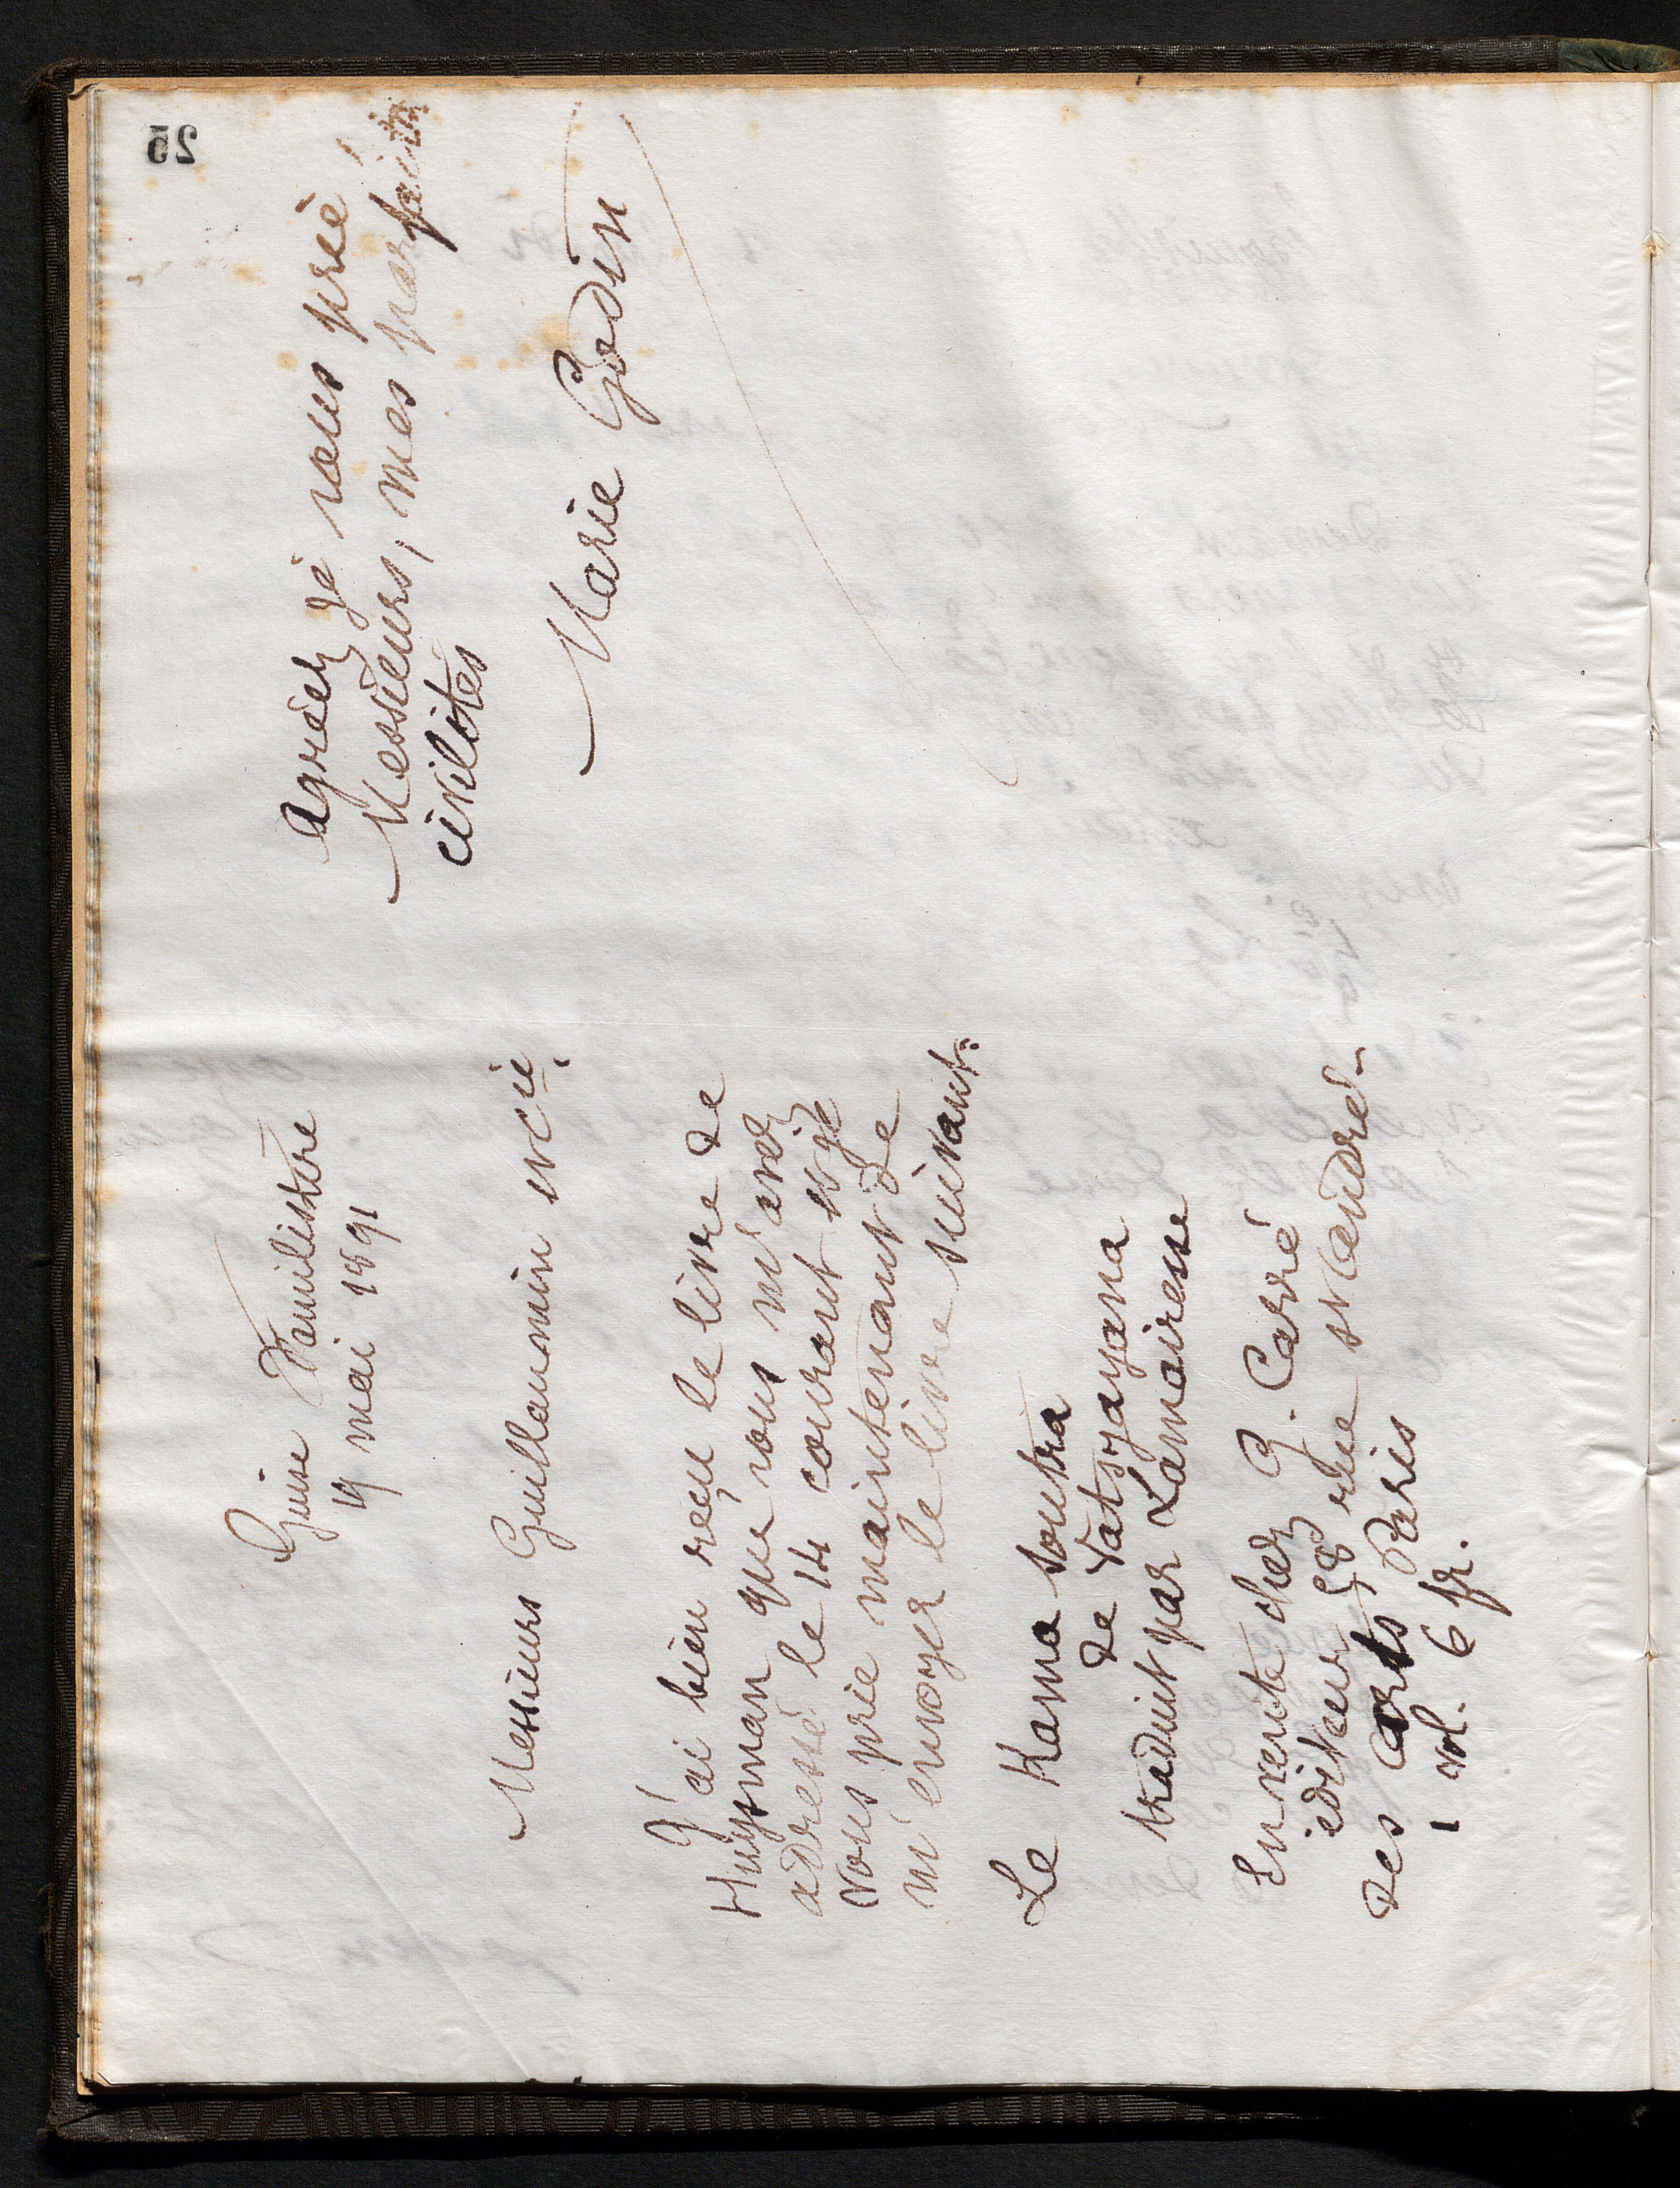 Guise Familistère
19 mai 1891
Messieurs Guillaumin et Cie,
J'ai bien reçu le livre de
Huysman que vous m'avez
adressé le 14 courant et je
vous prie maintenant de
m'envoyer le livre suivant:
Le Kama soutra
de Vatsyayana
traduit par Lamairesse
En vente chez G. Carré
éditeur 58 rue St André-
des arts Paris
1 vol. 6 fr.
Agréez je vous prie
Messieurs, mes parfaites
civilités
Marie Godin
25